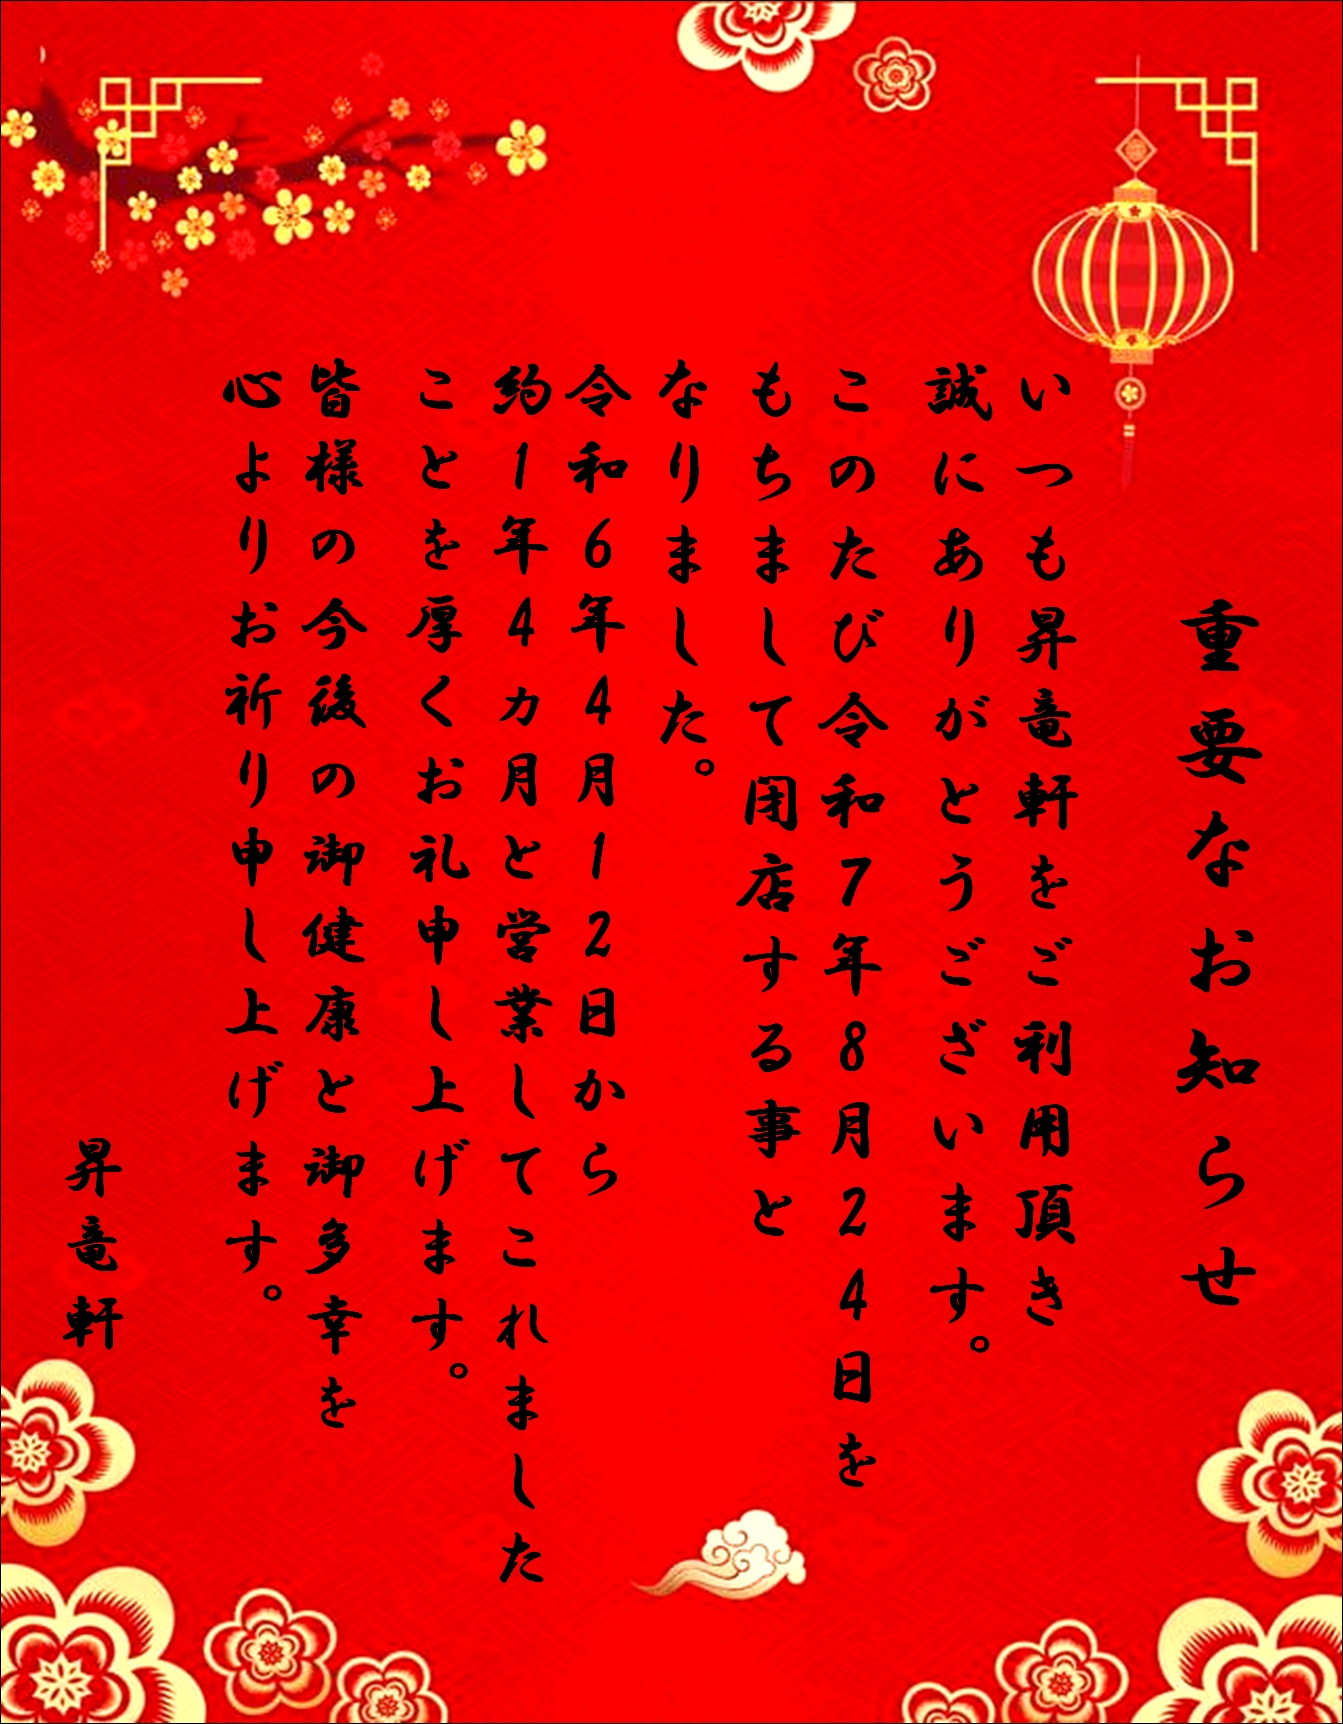 重要なお知らせ
いつも昇竜軒をご利用頂き
誠にありがとうございます。
このたび令和7年8月24日を
もちまして閉店する事と
なりました。
令和6年4月12日から
約1年4カ月と営業してこれました
ことを厚くお礼申し上げます。
皆様の今後の御健康と御多幸を
心よりお祈り申し上げます。
昇竜軒